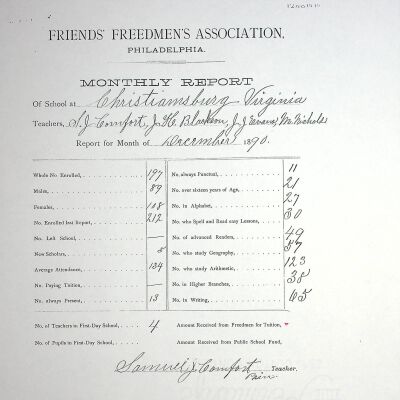 FRIENDS' FREEDMEN'S ASSOCIATION,
PHILADELPHIA.
MONTHLY REPORT
Of School at Christiansburg Virginia
Teachers, S. J. Comfort, J. H. C. J. J. Evans, M. Nichols
Report for Month of December 1890.
Whole No. Enrolled, 197
Males, 89
Females, 108
No. Enrolled last Report, 212
No. Left School, —
New Scholars, 8
Average Attendance, 134
No. Paying Tuition, —
No. always Present, 13
No. always Punctual, 11
No. over sixteen years of Age, 21
No. in Alphabet, 27
No. who Spell and Read easy Lessons, 30
No. of advanced Readers, 49
No. who study Geography, 57
No. who study Arithmetic, 123
No. in Higher Branches, 38
No. in Writing, 65
No. of Teachers in First-Day School, 4
No. of Pupils in First-Day School,
Amount Received from Freedmen for Tuition,
Amount Received from Public School Fund,
Samuel J. Comfort Teacher.
Prin.